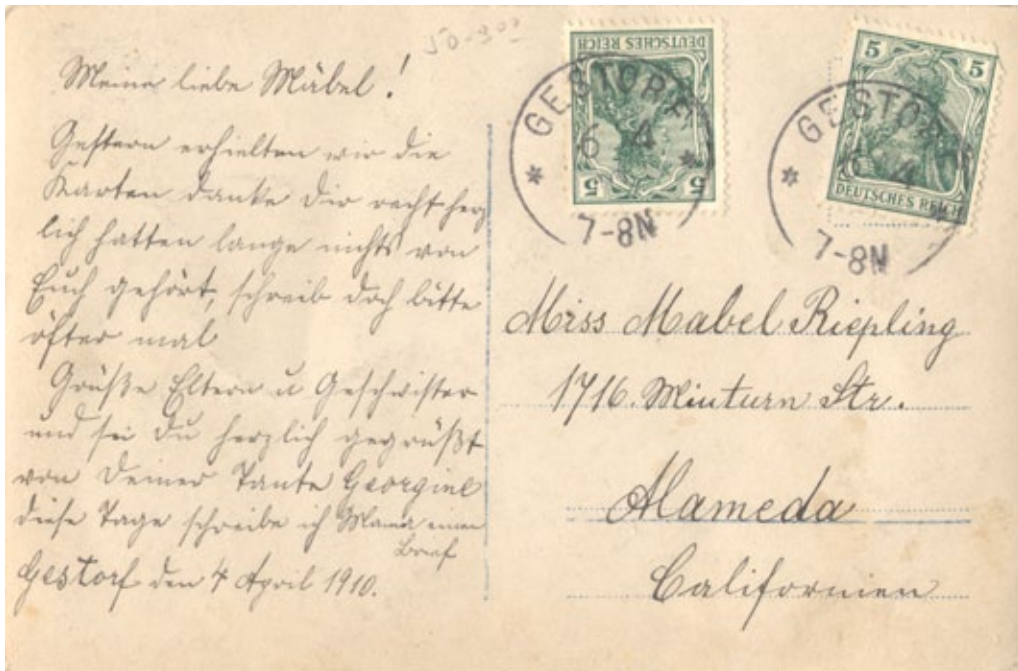 50-300
Meine liebe Mäbel!
Gestern erhielten wir die
Karten danke Dir recht herz
lich hatten lange nichts von
Euch gehört, schreib doch bitte
öfter mal
Grüße Eltern u Geschwister
und sei Du herzlich gegrüßt
von Deiner Tante Georgine
diese Tage schreibe ich Mama einen
Brief
Gestorf den 4 April 1910.
DEUTSCHES REICH
5 5
GESTORF
6 4
7-8N
5 5
DEUTSCHES REICH
GESTORF
6 4
7-8N
Miss Mabel Riepling
1716. Minturn Str.
Alameda
Californien